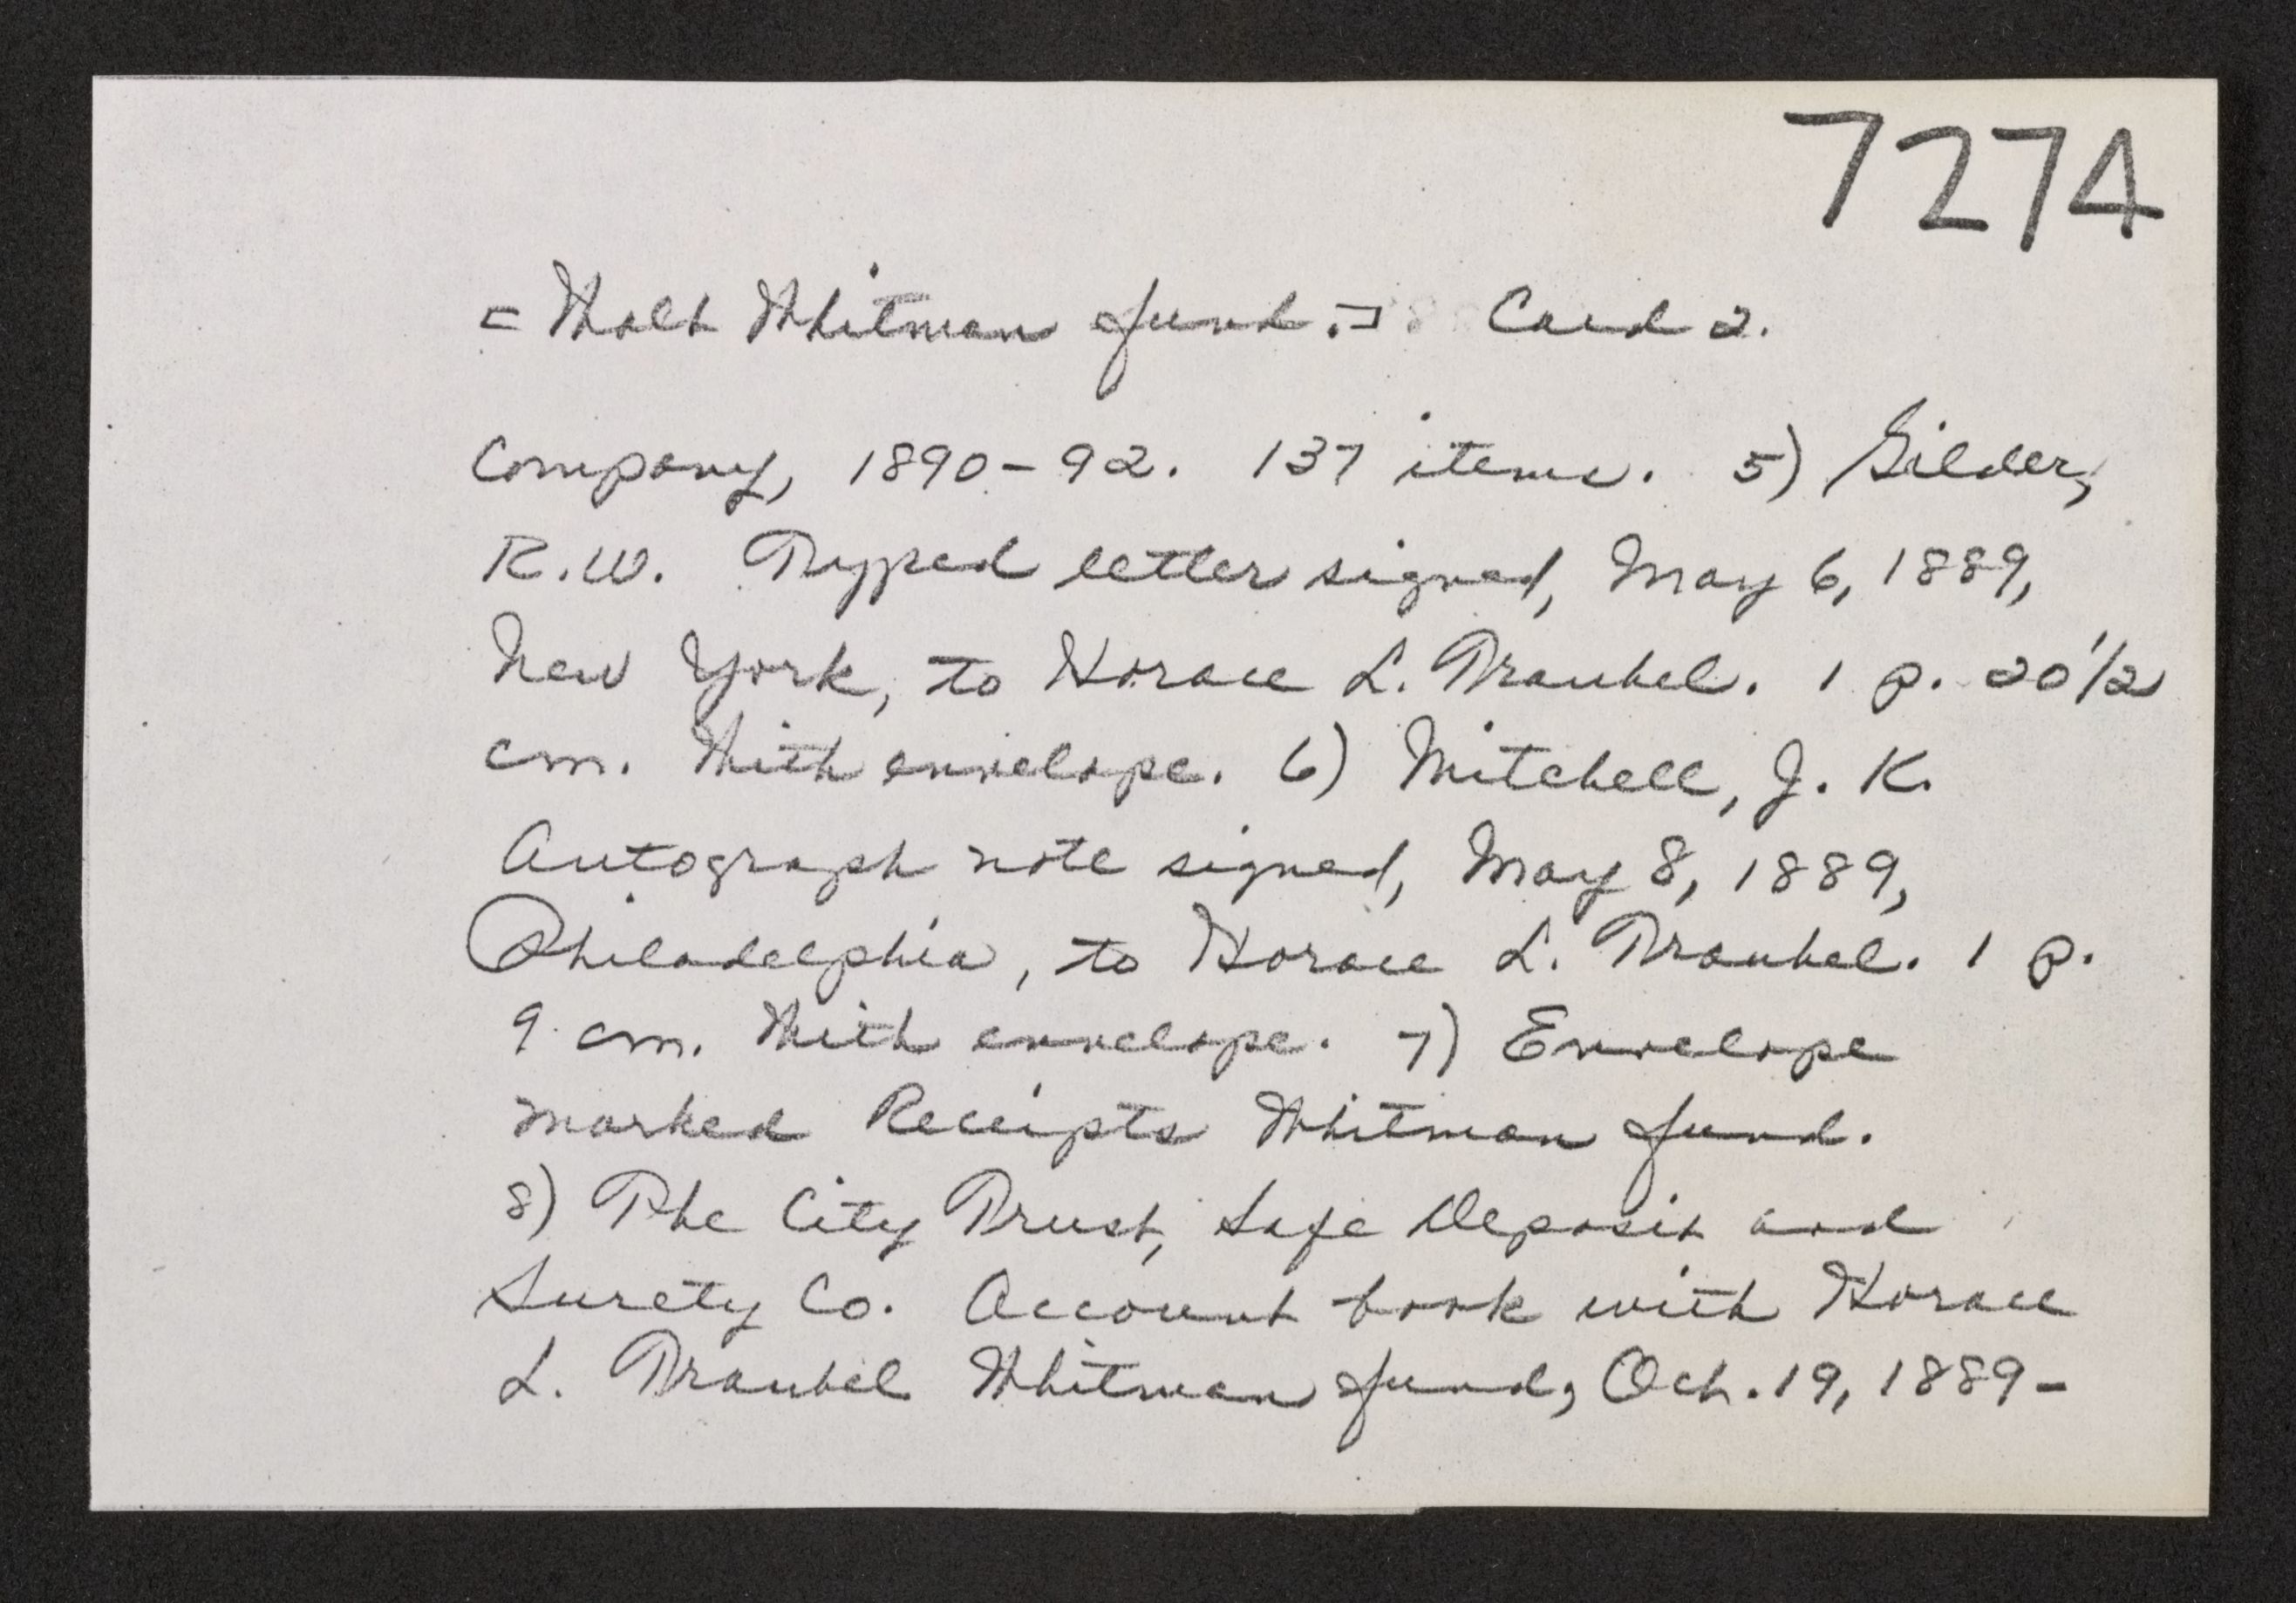 7274
[Walt Whitman fund.] Card 2.
Company, 1890-92. 137 items. 5) Gilder,
R.W. Typed letter signed, May 6, 1889,
New York, to Horace L. Traubel. 1 p. 20 1/2
cm. With envelope. 6) Mitchell, J. K.
Autograph note signed, May 8, 1889,
Philadelphia, to Horace L. Traubel. 1 p.
9 cm. With envelope. 7) Envelope
marked Receipts Whitman fund.
8) The City Trust, Safe Deposit and
Surety Co. Account book with Horace
L. Traubel Whitman fund, Oct. 19, 1889-